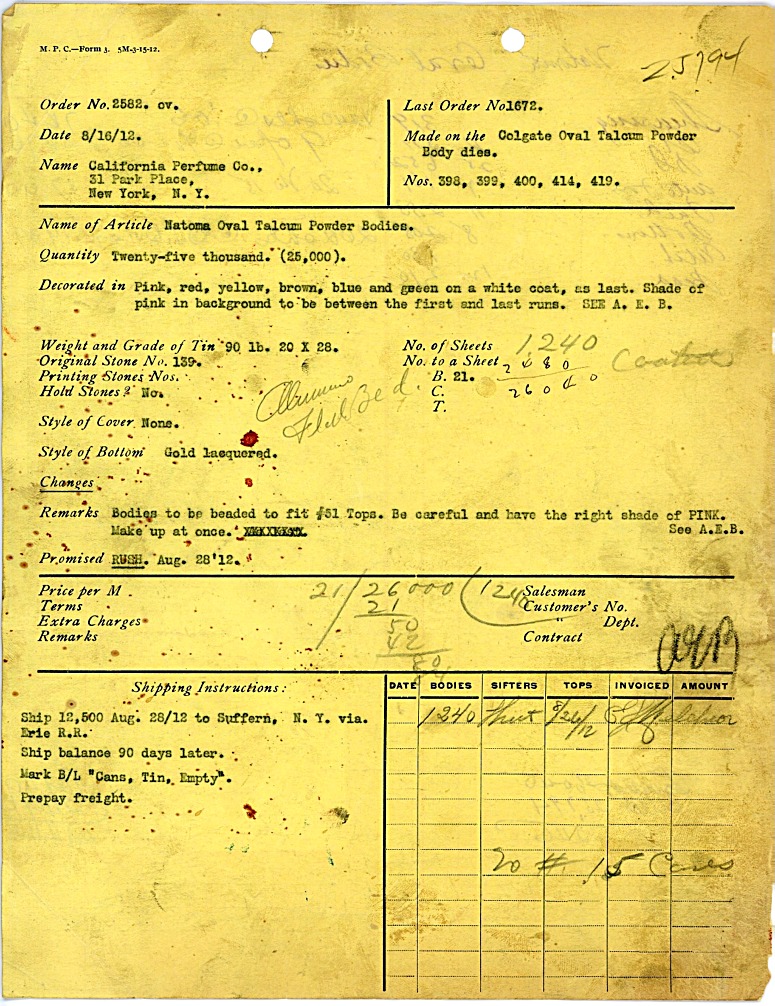 M. P. C.—Form 3. 5M-3-15-12.
25794
Order No. 2582. ov.
Last Order No 1672.
Date 8/16/12.
Made on the Colgate Oval Talcum Powder
Body dies.
Name California Perfume Co.,
31 Park Place,
New York, N. Y.
Nos. 398, 399, 400, 414, 419.
Name of Article Natoma Oval Talcum Powder Bodies.
Quantity Twenty-five thousand. (25,000).
Decorated in Pink, red, yellow, brown, blue and green on a white coat, as last. Shade of
pink in background to be between the first and last runs. SEE A. E. B.
Weight and Grade of Tin 90 lb. 20 X 28.
No. of Sheets 1240
Original Stone No. 139.
No. to a Sheet 2480
Coated
Printing Stones Nos.
B. 21.
Hold Stones? No.
C. 26040
T.
Flat Bed.
Style of Cover None.
Style of Bottom Gold lacquered.
Changes
Remarks Bodies to be beaded to fit #51 Tops. Be careful and have the right shade of PINK.
Make up at once. See A.E.B.
Promised RUSH. Aug. 28'12.
Price per M
21/26000(1240
Salesman
Terms
21
Customer's No.
Extra Charges
50
" Dept.
Remarks
42
Contract
84
AEB
Shipping Instructions:
DATE BODIES SIFTERS TOPS INVOICED AMOUNT
1240 8/26/12
Ship 12,500 Aug. 28/12 to Suffern, N. Y. via.
Erie R.R.
Ship balance 90 days later.
Mark B/L "Cans, Tin, Empty".
Prepay freight.
20 # 15 Cases